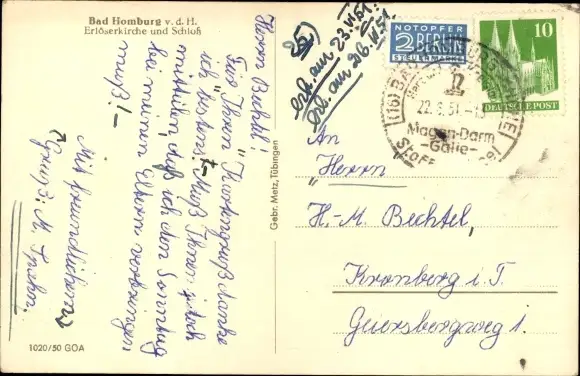 Bad Homburg v. d. H.
Erlöserkirche und Schloß
Herrn Bechtel!
Für Ihren Kartengruß danke
ich bestens. Muß Ihnen jedoch
mitteilen, daß ich den Sonntag
bei meinen Eltern verbringen
muß! –
Mit freundlichem
Gruß: M.
1020/50 GOA
Gebr. Metz, Tübingen
erh. am 23.VI.51.
am 26.VI.51.
NOTOPFER
2 BERLIN
STEUERMARKE
10
DEUTSCHE POST
(16) BAD HOMBURG
22.6.51.
Magen-Darm
-Galle-
Stoff
An
"Herrn"
H.-M. Bechtel,
Kronberg i. T.
Geiersbergweg 1.